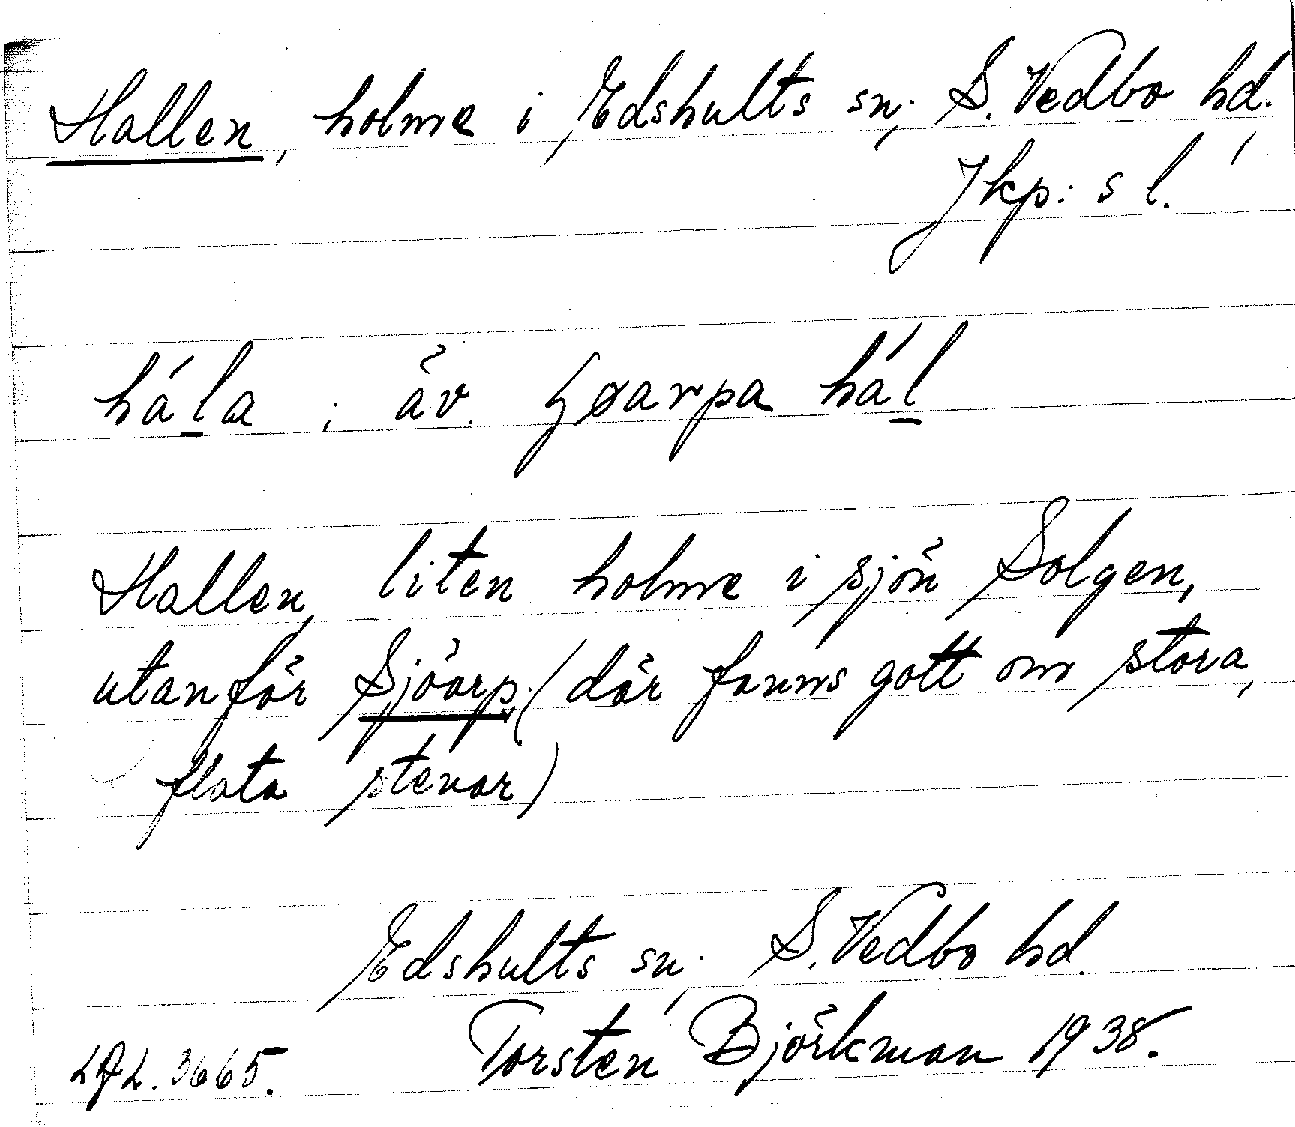 Hallen, holme i Edshults sn, S. Vedbo hd.,
Jkp: s l.
há̱la ; äv. ʂøarpa há̱l
Hallen, liten holme i sjön Solgen,
utanför Sjöarp. (där fanns gott om stora,
flata stenar)
Edshults sn, S. Vedbo hd.
Torsten Björkman 1938.
3665.